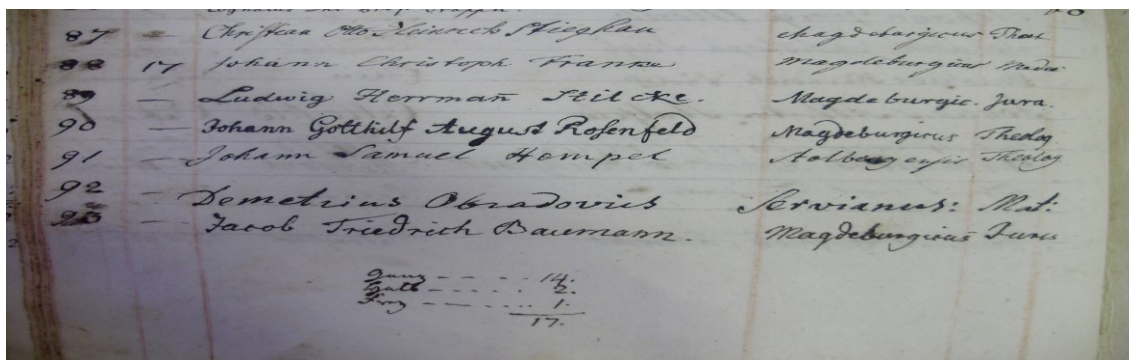 87 — Christian Otto Heinrich Magdeburgicus Theol
88 17 Johann Christoph Magdeburgicus
89 — Ludwig Herrman̄ Stilcke. Magdeburgic. Jura.
90 — Johann Gotthilf August Rosenfeld Magdeburgicus Theolog
91 — Johann Samuel Hempel Theolog
92 — Demetrius Obradovics Servianus: Mat:
93 — Jacob Friedrich Baumann. Magdeburgicus Juris
Ganz - - - - - 14.
Halb - - - - - 2.
Frey - - - - - 1.
17.